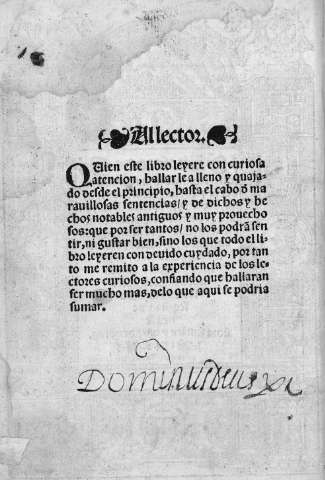 Al lector.
QUien este libro leyere con curiosa
atencion, hallar le a lleno y quaja-
do desde el principio, hasta el cabo d̃ ma
rauillosas sentencias / y de dichos y he
chos notables antiguos y muy prouecho
sos: que por ser tantos / no los podrã sen
tir, ni gustar bien, sino los que todo el li-
bro leyeren con deuido cuydado, por tan
to me remito a la experiencia de los le-
ctores curiosos, confiando que hallaran
ser mucho mas, delo que aqui se podria
sumar.